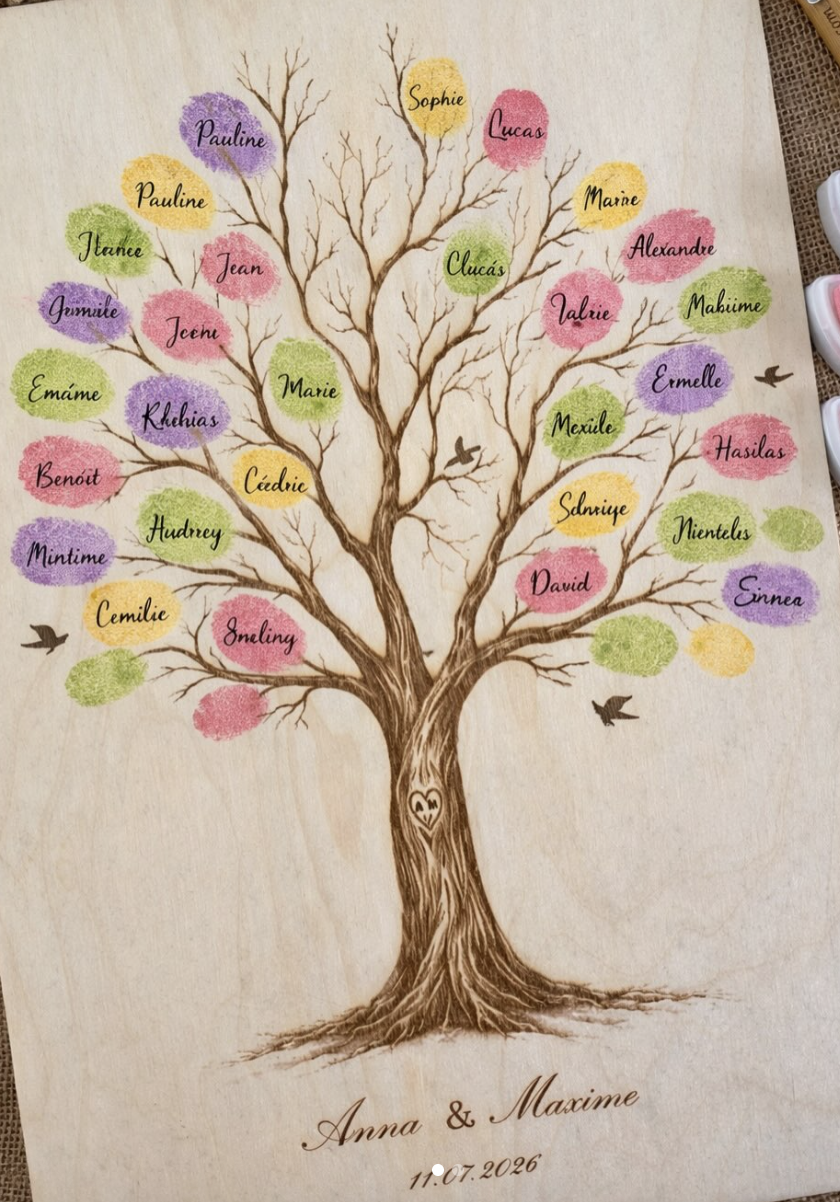 Sophie
Lucas
Pauline
Pauline
Marine
Alexandre
Jean
Clucás
Mabiime
Valrie
Jcenı
Emáme
Marie
Ermelle
Khehias
Mexile
Hasilas
Benóit
Céedric
Sdnriye
Hudrrey
Nienteles
Mintime
David
Einnea
Cemilie
Sneling
A M
Anna & Maxime
11.07.2026